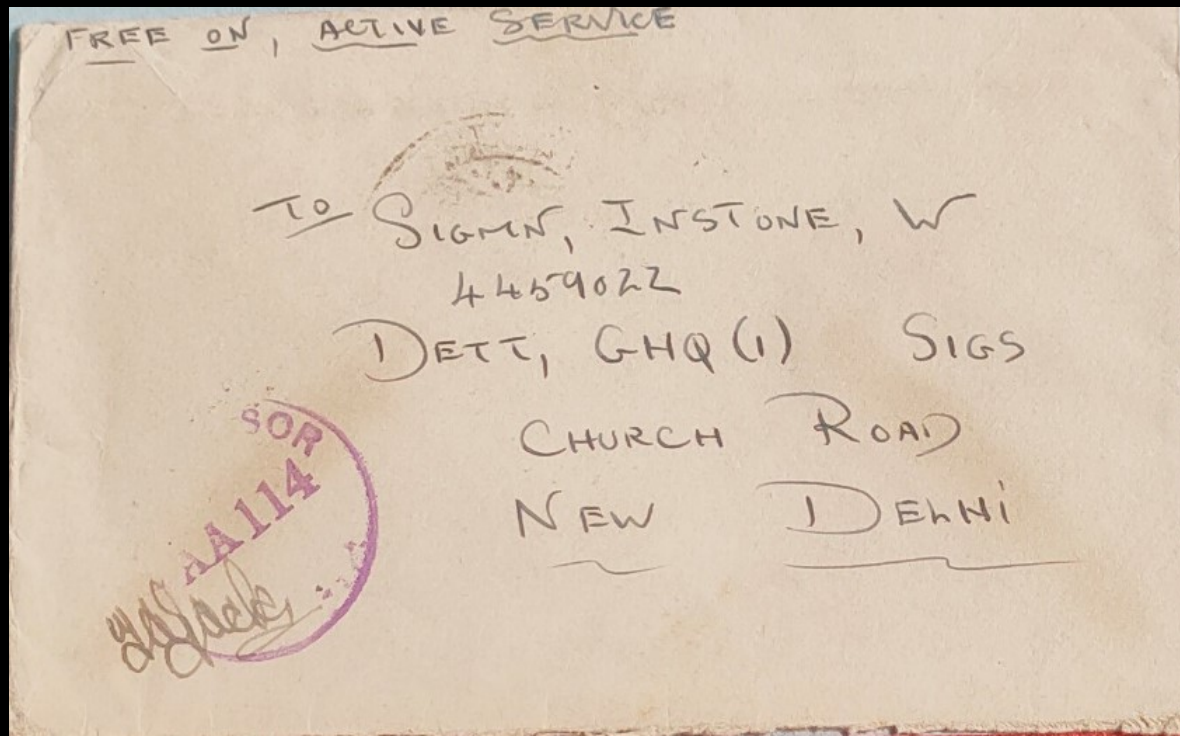 FREE ON, ACTIVE SERVICE
TO SIGMN, INSTONE, W
4459022
DETT, GHQ (1) SIGS
CHURCH ROAD
NEW DELHI
SOR
AA114